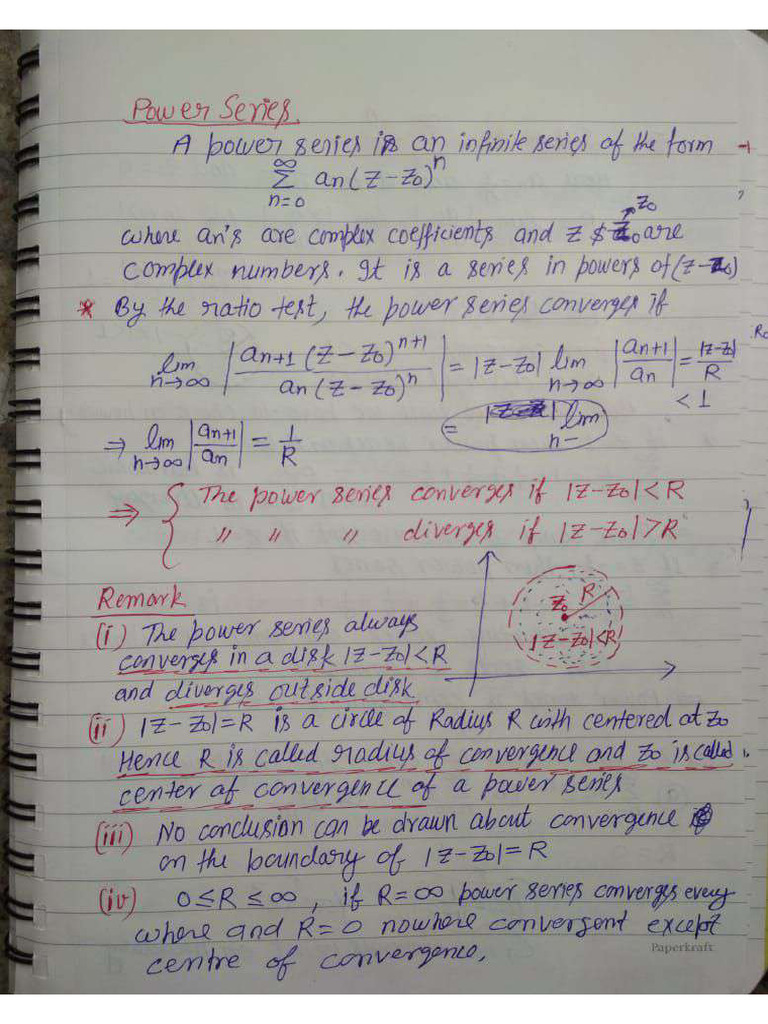 Power Series.
A power series is an infinite series of the form →
∞
Σ an(z-z₀)ⁿ
n=0
z₀
where an's are complex coefficients and z & z₀ are
complex numbers. It is a series in powers of (z-z₀)
* By the ratio test, the power series converges if
lim n→∞ |an+1 (z-z₀)ⁿ⁺¹ / an (z-z₀)ⁿ| = |z-z₀| lim n→∞ |an+1 / an| = |z-z₀| / R
< 1
= lim
n-
⇒ lim n→∞ |an+1 / an| = 1/R
⇒ { The power series converges if |z-z₀| < R
" " " diverges if |z-z₀| > R
z₀ R
|z-z₀|<R
Remark
(i) The power series always
converges in a disk |z-z₀| < R
and diverges outside disk
(ii) |z-z₀| = R is a circle of Radius R with centered at z₀
Hence R is called radius of convergence and z₀ is called
center of convergence of a power series
(iii) No conclusion can be drawn about convergence
on the boundary of |z-z₀| = R
(iv) 0≤R≤∞, if R=∞ power series converges every
where and R=0 nowhere convergent except
centre of convergence.
Paperkraft